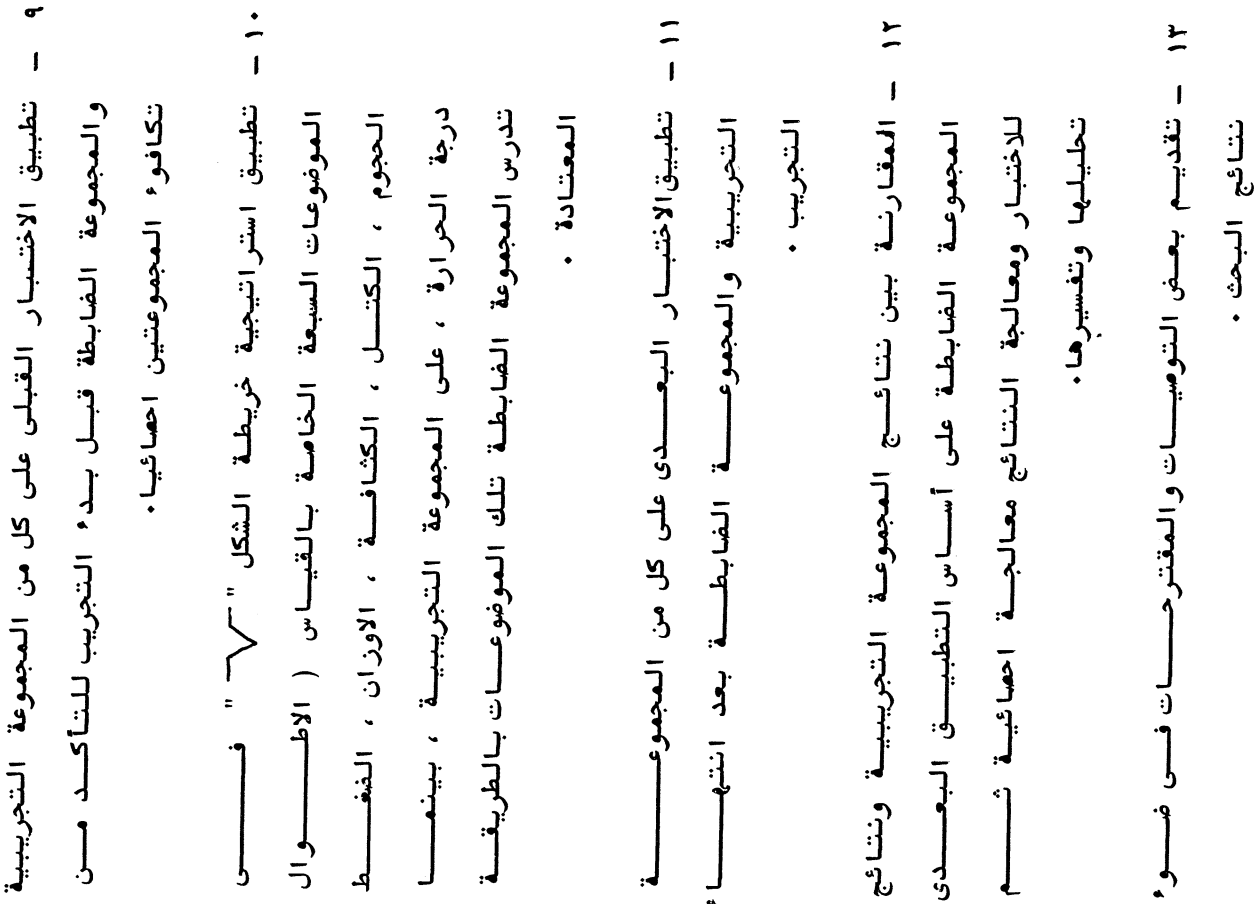 ٩ - تطبيق الاختبار القبلى على كل من المجموعة التجريبية
والمجموعة الضابطة قبل بدء التجريب للتأكد من
تكافوء المجموعتين احصائيا.
١٠ - تطبيق استراتيجية خريطة الشكل "V" فى
الموضوعات السبعة الخاصة بالقياس ( الاطوال
الحجوم ، الكتل ، الكثافة ، الاوزان ، الضغط
درجة الحرارة ، على المجموعة التجريبية ، بينما
تدرس المجموعة الضابطة تلك الموضوعات بالطريقة
المعتادة .
١١ - تطبيق الاختبار البعدى على كل من المجموعة
التجريبية والمجموعة الضابطة بعد انتهاء
التجريب .
١٢ - المقارنة بين نتائج المجموعة التجريبية ونتائج
المجموعة الضابطة على أساس التطبيق البعدى
للاختبار ومعالجة النتائج معالجة احصائية ثم
تحليلها وتفسيرها.
١٣ - تقديم بعض التوصيات والمقترحات فى ضوء
نتائج البحث .